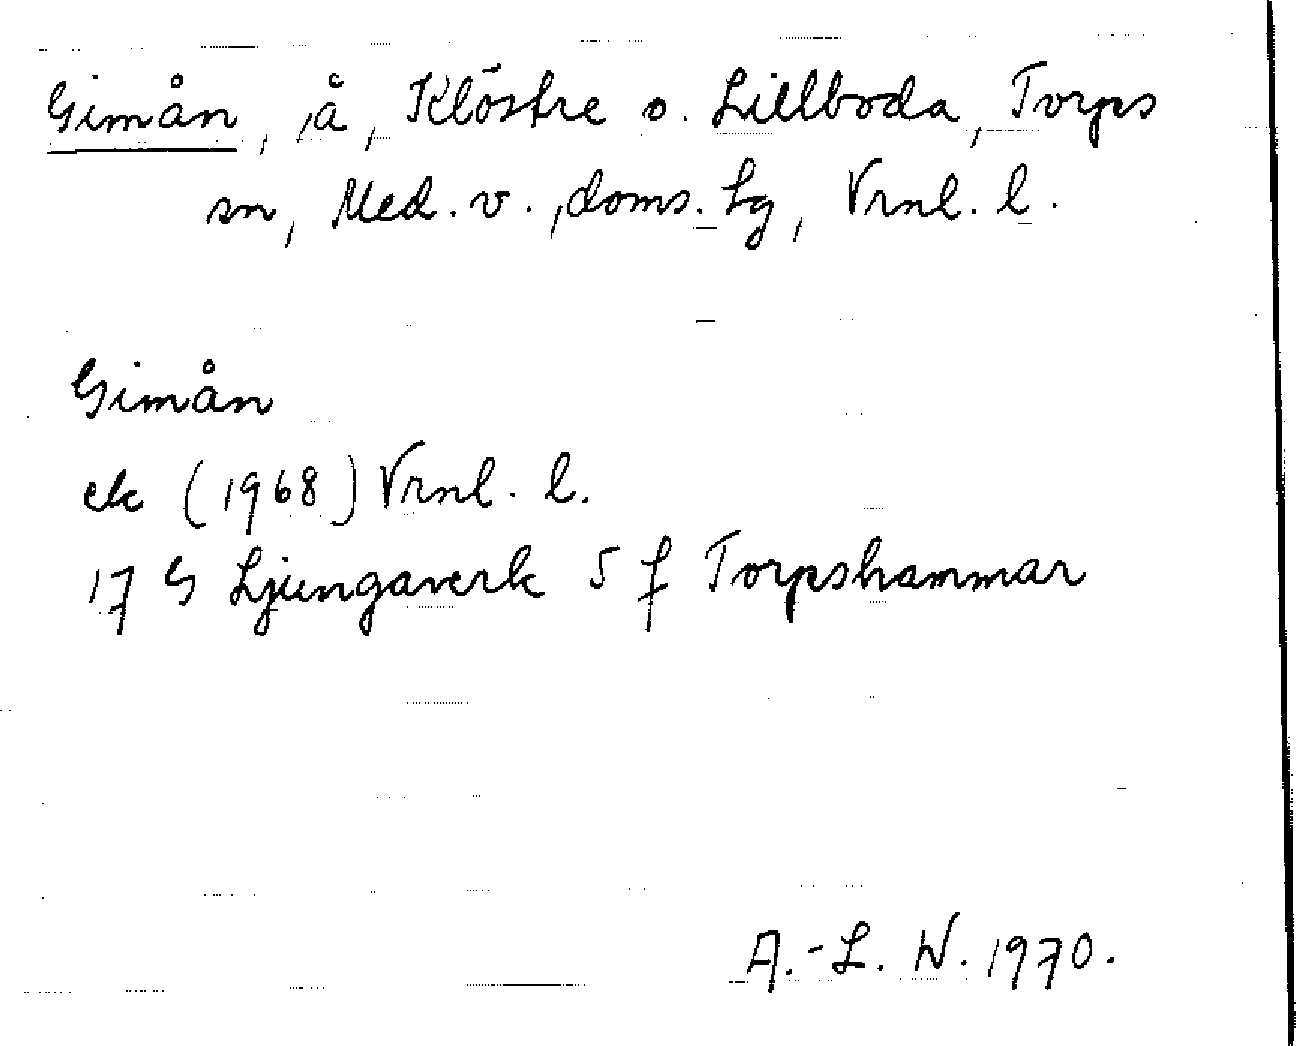 Gimån, å, Klöstre o. Lillboda, Torps
sn, Med. v., doms. Lg, Vrnl. l.
Gimån
ek (1968) Vrnl. l.
17 G Ljungaverk 5 f Torpshammar
A.-L. W. 1970.